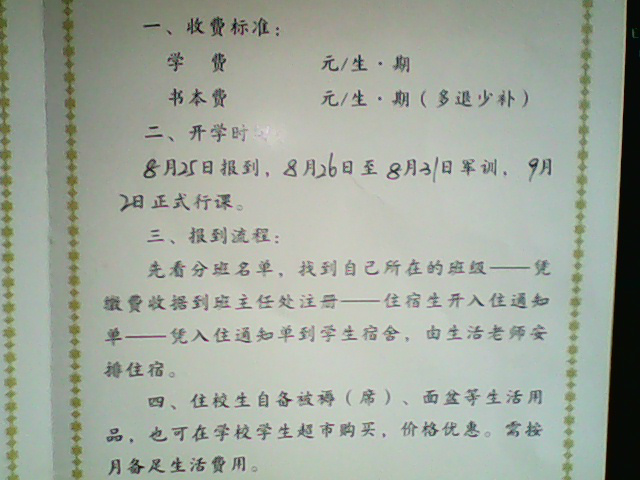 一、收费标准：
学 费 元/生·期
书本费 元/生·期（多退少补）
二、开学时
8月25日报到，8月26日至8月31日军训，9月
2日正式行课。
三、报到流程：
先看分班名单，找到自己所在的班级——凭
缴费收据到班主任处注册——住宿生开入住通知
单——凭入住通知单到学生宿舍，由生活老师安
排住宿。
四、住校生自备被褥（席）、面盆等生活用
品，也可在学校学生超市购买，价格优惠。需按
月备足生活费用。